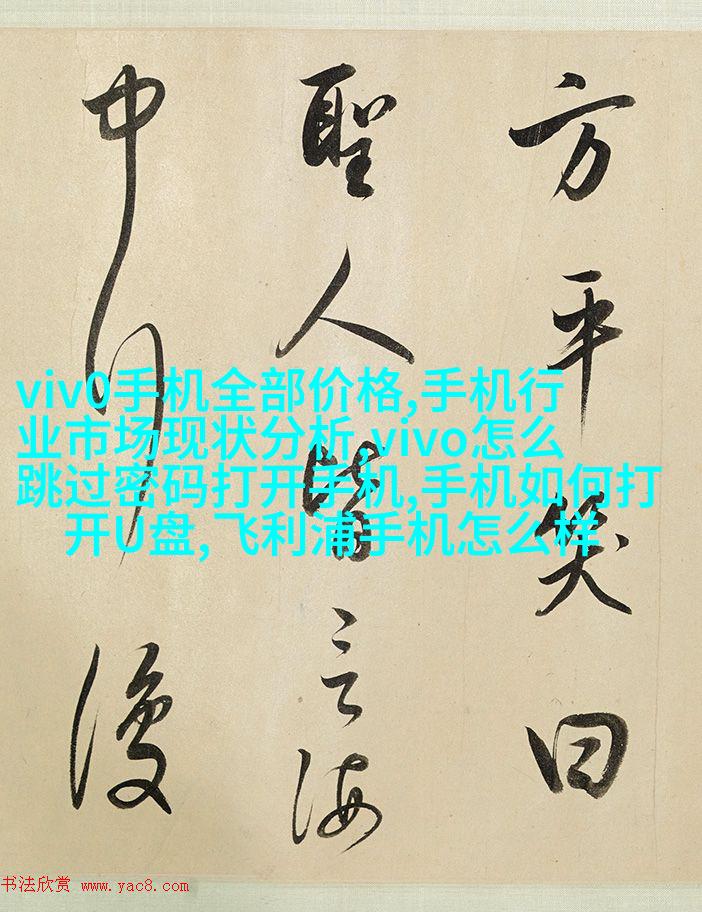 方平笑曰
聖人皆言海
中行復
viv0手机全部价格,手机行
业市场现状分析,vivo怎么
跳过密码打开手机,手机如何打
开U盘,飞利浦手机怎么样
书法欣赏 www.yac8.com